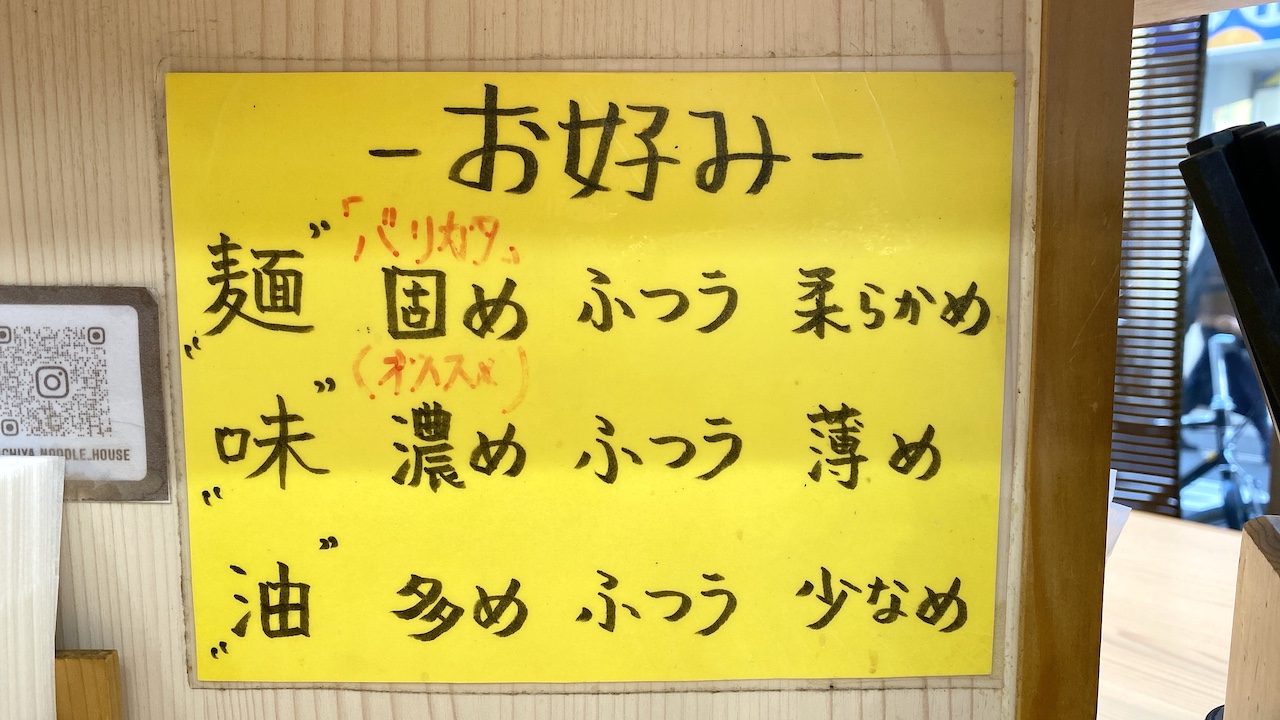 -お好み-
「バリカタ」
"麺" 固め ふつう 柔らかめ
(オススメ)
"味" 濃め ふつう 薄め
"油" 多め ふつう 少なめ
CHIYA_NOODLE_HOUSE